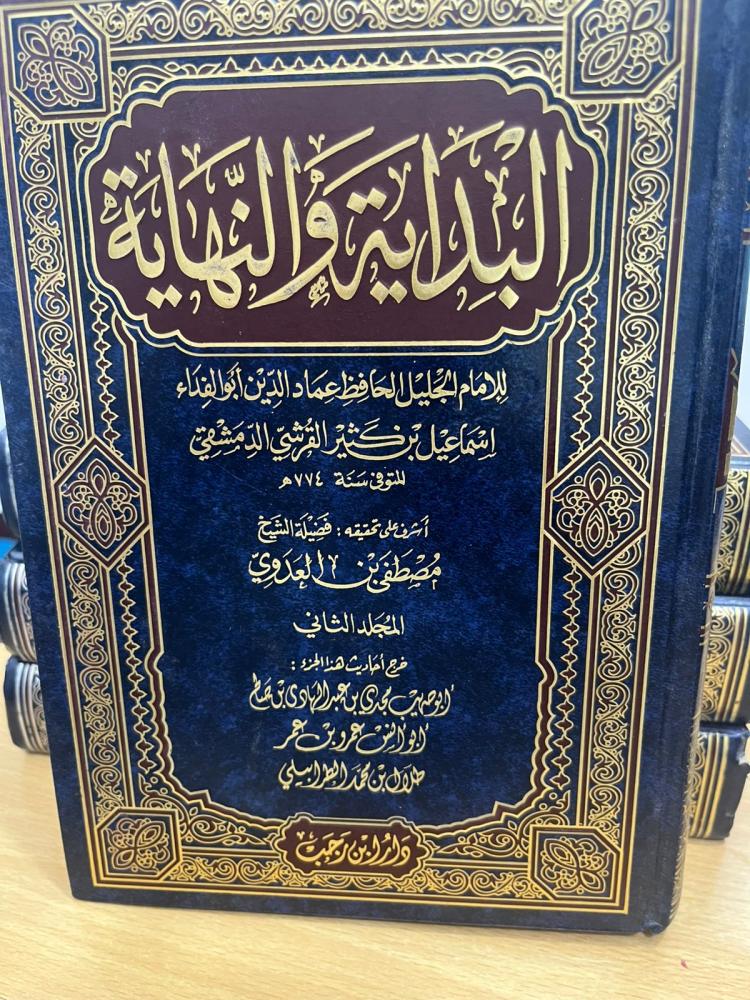 البداية والنهاية
للإمام الجليل الحافظ عماد الدين أبو الفداء
إسماعيل بن كثير القرشي الدمشقي
المتوفى سنة ٧٧٤ هـ
أشرف على تحقيقه : فضيلة الشيخ
مصطفى بن العدوي
المجلد الثاني
خرج أحاديث هذا الجزء :
أبو صهيب مجدي بن عبد الهادي بن صالح
أبو أنس عمرو بن عمر
طلال بن محمد الطرابيلي
دار ابن رجب